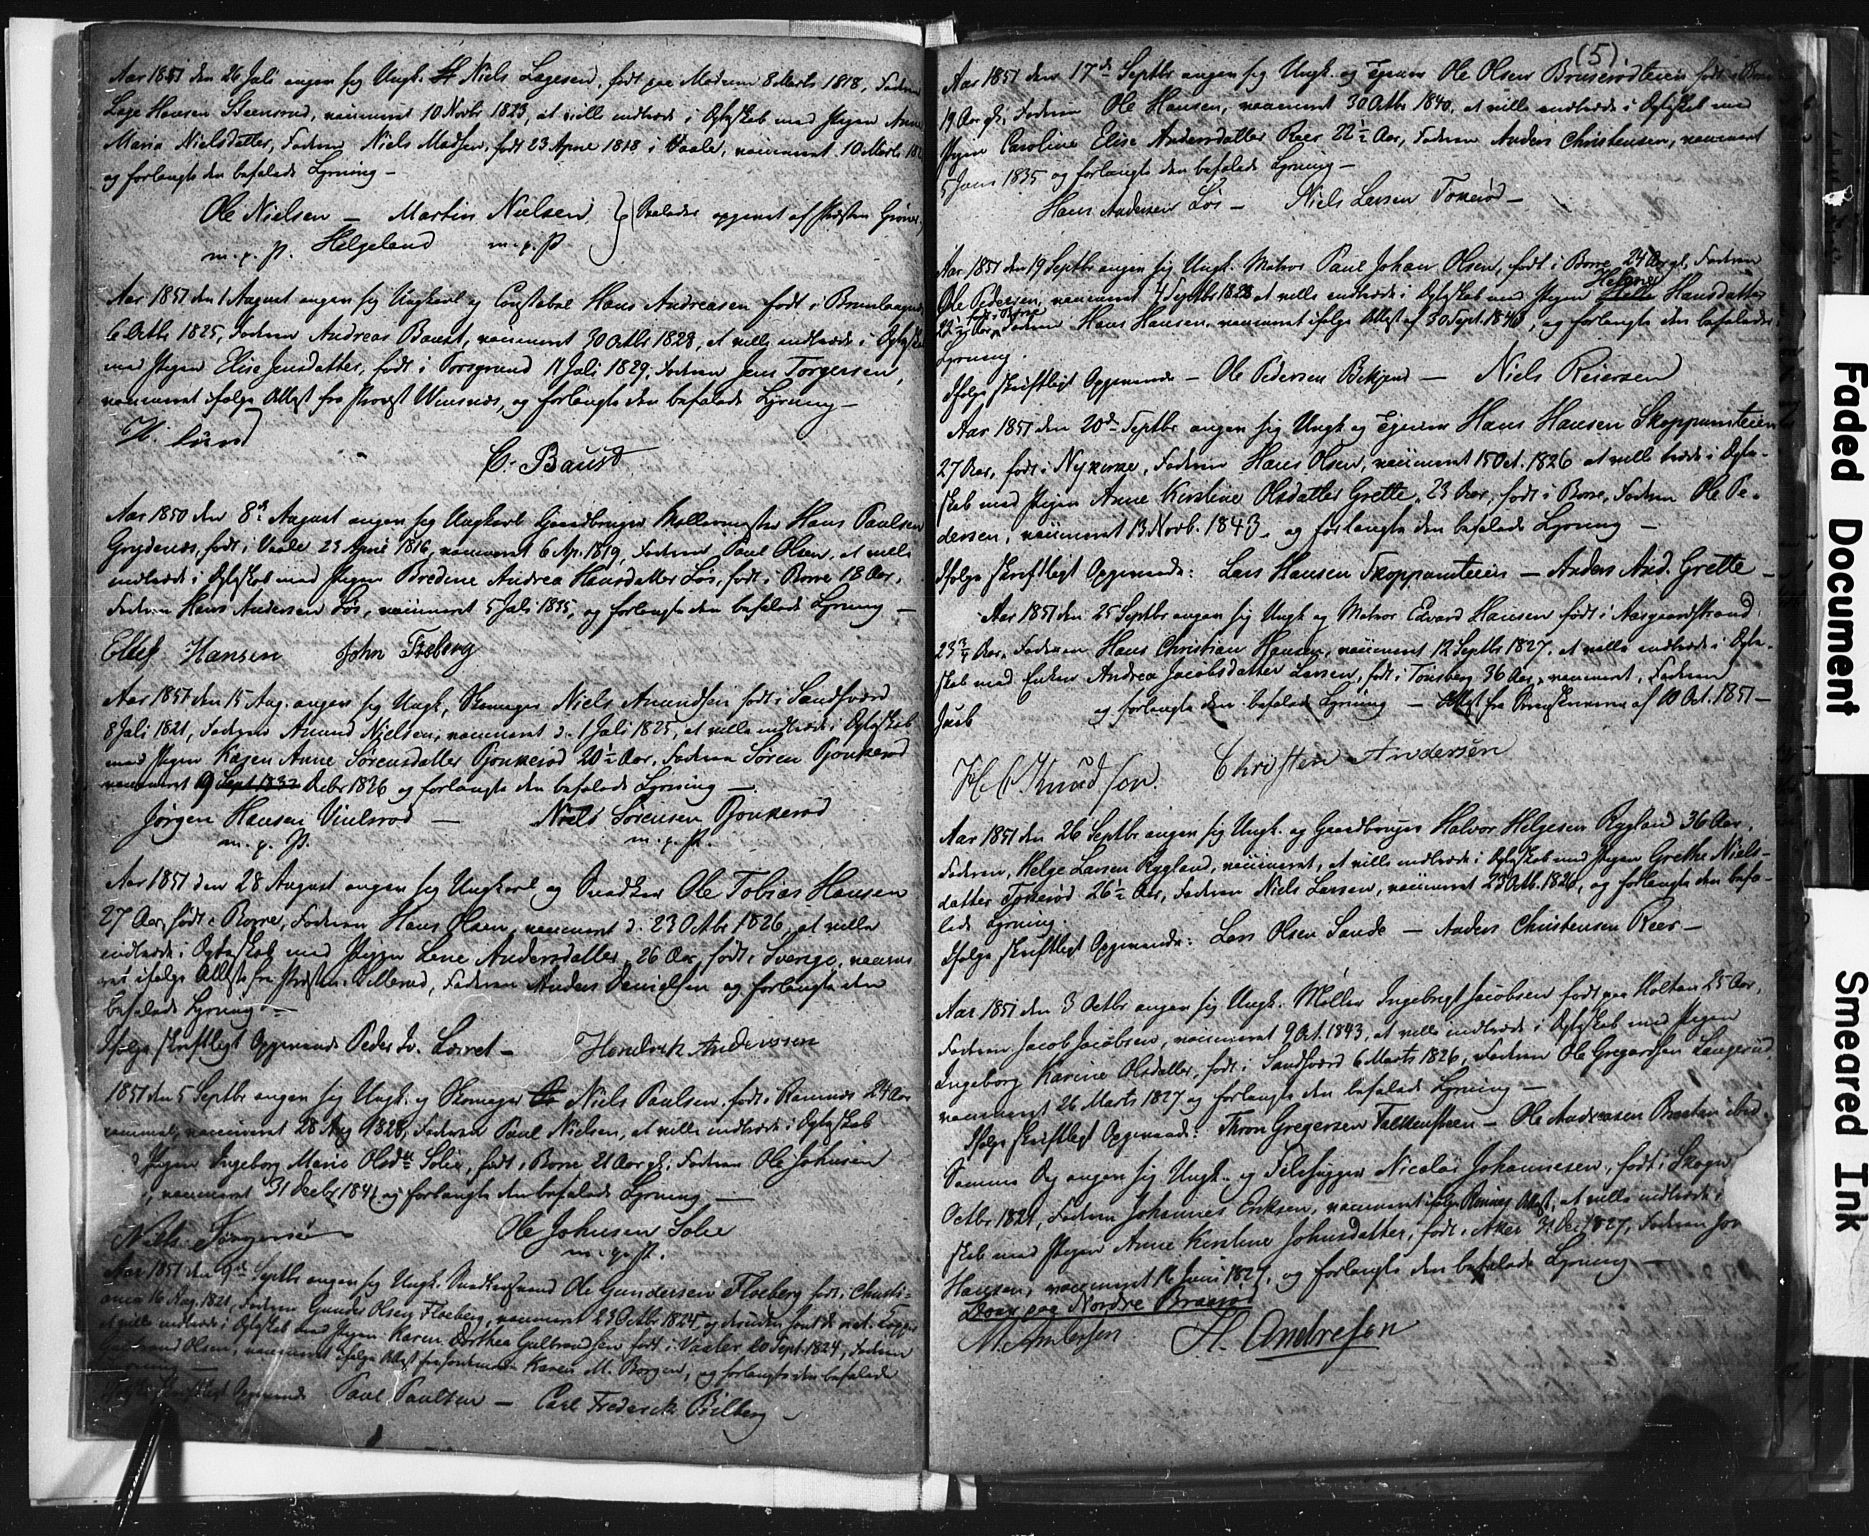 Aar 1851 den 26 Juli angav sig Ungk. Niels Lagesen, født paa Modum 8 Marts 1818, Faderen
Lage Hansen Steensrud, vaccineret 10 Novbr 1823, at ville indtræde i Ægteskab med Pigen Anne
Maria Nielsdatter, Faderen Niels Madsen, født 23 April 1818 i Vaale, vaccineret 10 Marts
og forlangte den befalede Lysning –
Ole Nielsen – Martin Nielsen } Skaleder opgivet af Præsten
m. p. P. Helgeland m. p. P.
Aar 1851 den 1 August angav sig Ungkarl og Constabel Hans Andreasen født i Brunlaugnes
6 Octb 1825, Faderen Andreas Baust, vaccineret 30 Octb 1828, at ville indtræde i Ægteskab
med Pigen Elise Jensdatter, født i Porsgrund 11 Juli 1829, Faderen Jens Torgersen,
vaccineret ifølge Attest fra Provst Winsnes, og forlangte den befalede Lysning –
H. Lund
C. Baust
Aar 1850 den 8de August angav sig Ungkarl Gaardbruger Møllermester Hans Paulsen
Grydenes, født i Vaale 23 April 1816, vaccineret 6 Ap. 1819, Faderen Paul Olsen, at ville
indtræde i Ægteskab med Pigen Bredine Andrea Hansdatter Løs, født i Borre 18 Aar,
Faderen Hans Andersen Løs, vaccineret 5 Juli 1835, og forlangte den befalede Lysning –
Ellef Hansen John Freberg
Aar 1851 den 15 Aug. angav sig Ungk. Skomager Niels Amundsen født i Sandsværd
8 Juli 1821, Faderen Amund Nielsen, vaccineret d. 1 Juli 1825, at ville indtræde i Ægteskab
med Pigen Karen Anne Sørensdatter Pjonkerød 20½ Aar, Faderen Søren Pjonkerød
vaccineret 19 Sept 1832 Decbr 1836 og forlangte den befalede Lysning –
Jørgen Hansen Viulsrød – Niels Sørensen Pjonkerød
m. p. P. m. p. P.
Aar 1851 den 28 August angav sig Ungkarl og Snedker Ole Tobias Hansen
27 Aar, født i Borre, Faderen Hans Olsen, vaccineret d. 23 Octbr 1826, at ville
indtræde i Ægteskab med Pigen Lene Andersdatter, 26 Aar, født i Sverige, vaccine
ret ifølge Attest fra Præsten i Hillerød, Faderen Anders Danielsen og forlangte den
befalede Lysning –
Ifølge skriftligt Opgivende Peder Lorret – Hendrik Anderssen
1851 den 5 Septbr angav sig Ungk. og Skomager Niels Paulsen, født i Ramnes 24 Aar
gammel, vaccineret 28 Aug 1828, Faderen Paul Nielsen, at ville indtræde i Ægteskab
Pigen Ingeborg Maria Olsdtr Solie, født i Borre 21 Aar gl. Faderen Ole Johnsen
, vaccineret 31 Decbr 1841 og forlangte den befalede Lysning –
Niels Jørgensen Ole Johnsen Solie
m. p. P.
Aar 1851 den 9de Septbr angav sig Ungk. Snedkersvend Ole Gundersen Floeberg født i Christi-
ania 16 Aug. 1821, Faderen Gunder Olsen Floeberg, vaccineret 23 Octbr 1825
at ville indtræde i Ægteskab med Pigen Karen Dorthea Gulbrandsen født i Vaaler 20 Sept. 1824, Faderen
Gulbrand Olsen, vaccineret ifølge Attest fra Jordmoder Karen M. Borgen, og forlangte den befalede
Lysning
Ifølge skriftligt Opgivende Paul Paulsen – Carl Frederik Bilberg –
(5).
Aar 1851 den 17de Septbr angav sig Ungk. og Eier Ole Olsen Bruserødteien født i
19 Aar gl., Faderen Ole Hansen, vaccineret 30 Octbr 1840, at ville indtræde i Ægteskab med
Pigen Caroline Elise Andersdatter Reer 22½ Aar, Faderen Anders Christensen, vaccineret
5 Juni 1835 og forlangte den befalede Lysning –
Hans Andersen Løs – Niels Larsen Toserød –
Aar 1851 den 19 Septbr angav sig Ungk. Matros Paul Johan Olsen, født i Borre, 24 Aar gl. Faderen
Helene
Ole Pedersen, vaccineret 4 Septbr 1828 at ville indtræde i Ægteskab med Pigen Hansdatter
født i Borre
22½ Aar, Faderen Hans Hansen, vaccineret ifølge Attest af 30 Sept. 1840, og forlangte den befalede
Lysning.
Ifølge skriftligt Opgivende – Ole Pedersen Bekjend – Niels Reiersen
Aar 1851 den 20de Septbr angav sig Ungk. og Eier Hans Hansen Skoppumteien
27 Aar, født i Nykirke, Faderen Hans Olsen, vaccineret 15 Oct. 1826 at ville træde i Ægte-
skab med Pigen Anne Kirstine Olsdatter Grette, 23 Aar, født i Borre, Faderen Ole Pe-
dersen, vaccineret 13 Novb. 1843, og forlangte den befalede Lysning –
Ifølge skriftligt Opgivende: Lars Hansen Skoppumteien – Anders And. Grette –
Aar 1851 den 25 Septbr angav sig Ungk. og Matros Edvard Hansen født i Aasgaardstrand,
23¾ Aar, Faderen Hans Christian Hansen, vaccineret 12 Septbr 1827, at ville indtræde i Ægte-
skab med Enken Andrea Jacobsdatter Larsen, født i Tønsberg 36 Aar, vaccineret, Faderen
Jacob og forlangte den befalede Lysning – Attest fra af 10 Oct. 1851 –
H. C. Knudsen. Christen Andersen
Aar 1851 den 26 Septbr angav sig Ungk. og Gaardbruger Halvor Helgesen Rygland 36 Aar,
Faderen, Helge Larsen Rygland, vaccineret, at ville indtræde i Ægteskab med Pigen Grethe Niels-
datter Toserød 26½ Aar, Faderen Niels Larsen, vaccineret 25 Octb. 1826, og forlangte den befa-
lede Lysning.
Ifølge skriftligt Opgivende: Lars Olsen Sande – Anders Christensen Reer –
Aar 1851 den 3 Octbr angav sig Ungk. Møller Ingebrigt Jacobsen født paa Holtan 25 Aar,
Faderen Jacob Jacobsen, vaccineret 9 Oct. 1843, at ville indtræde i Ægteskab med Pigen
Ingeborg Karine Olsdatter, født i Sandsværd 6 Marts 1826, Faderen Ole Gregersen Langerud,
vaccineret 26 Marts 1827 og forlangte den befalede Lysning –
Ifølge skriftligt Opgivende: Thron Gregersen Falkensteen – Ole Andreasen Braatan ibid.
Samme Dag angav sig Ungk. og Filehugger Nicolai Johannesen, født i Skoger
Octbr 1821, Faderen Johannes Eriksen, vaccineret ifølge Attest, at ville indtræde i
skab med Pigen Anne Kirstine Johnsdatter, født i Aker 31 Dec 1827, Faderen Jon
Hansen, vaccineret 16 Juni 1829, og forlangte den befalede Lysning –
Boer paa Nordre Braarød
M. Andersen H. Andresen
Faded Document
Smeared Ink